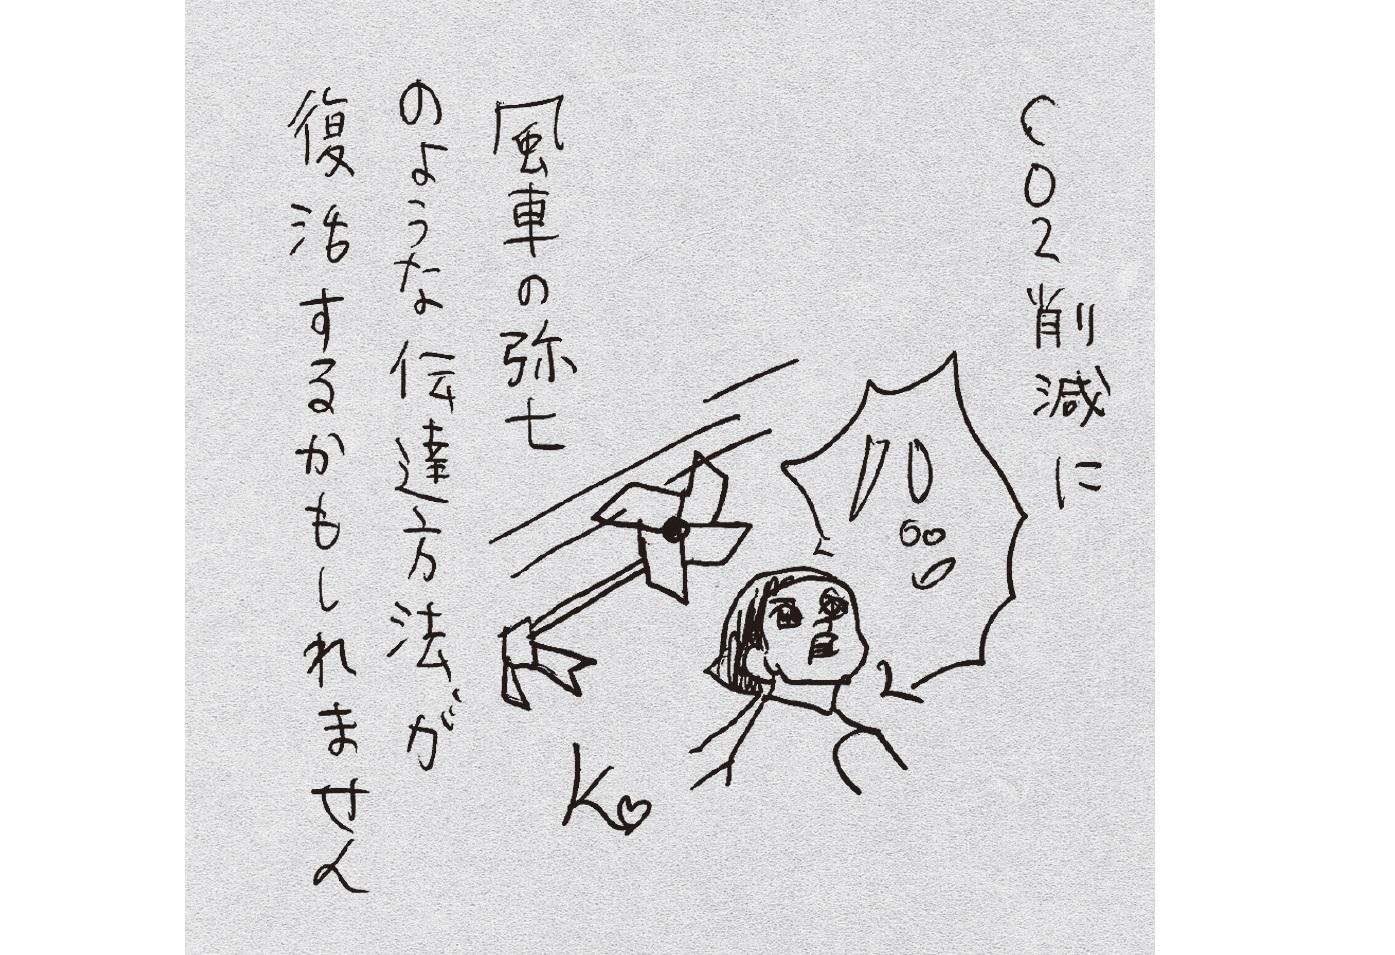 CO2削減に
ハッ
風車の弥七
のような伝達方法が
復活するかもしれません
K